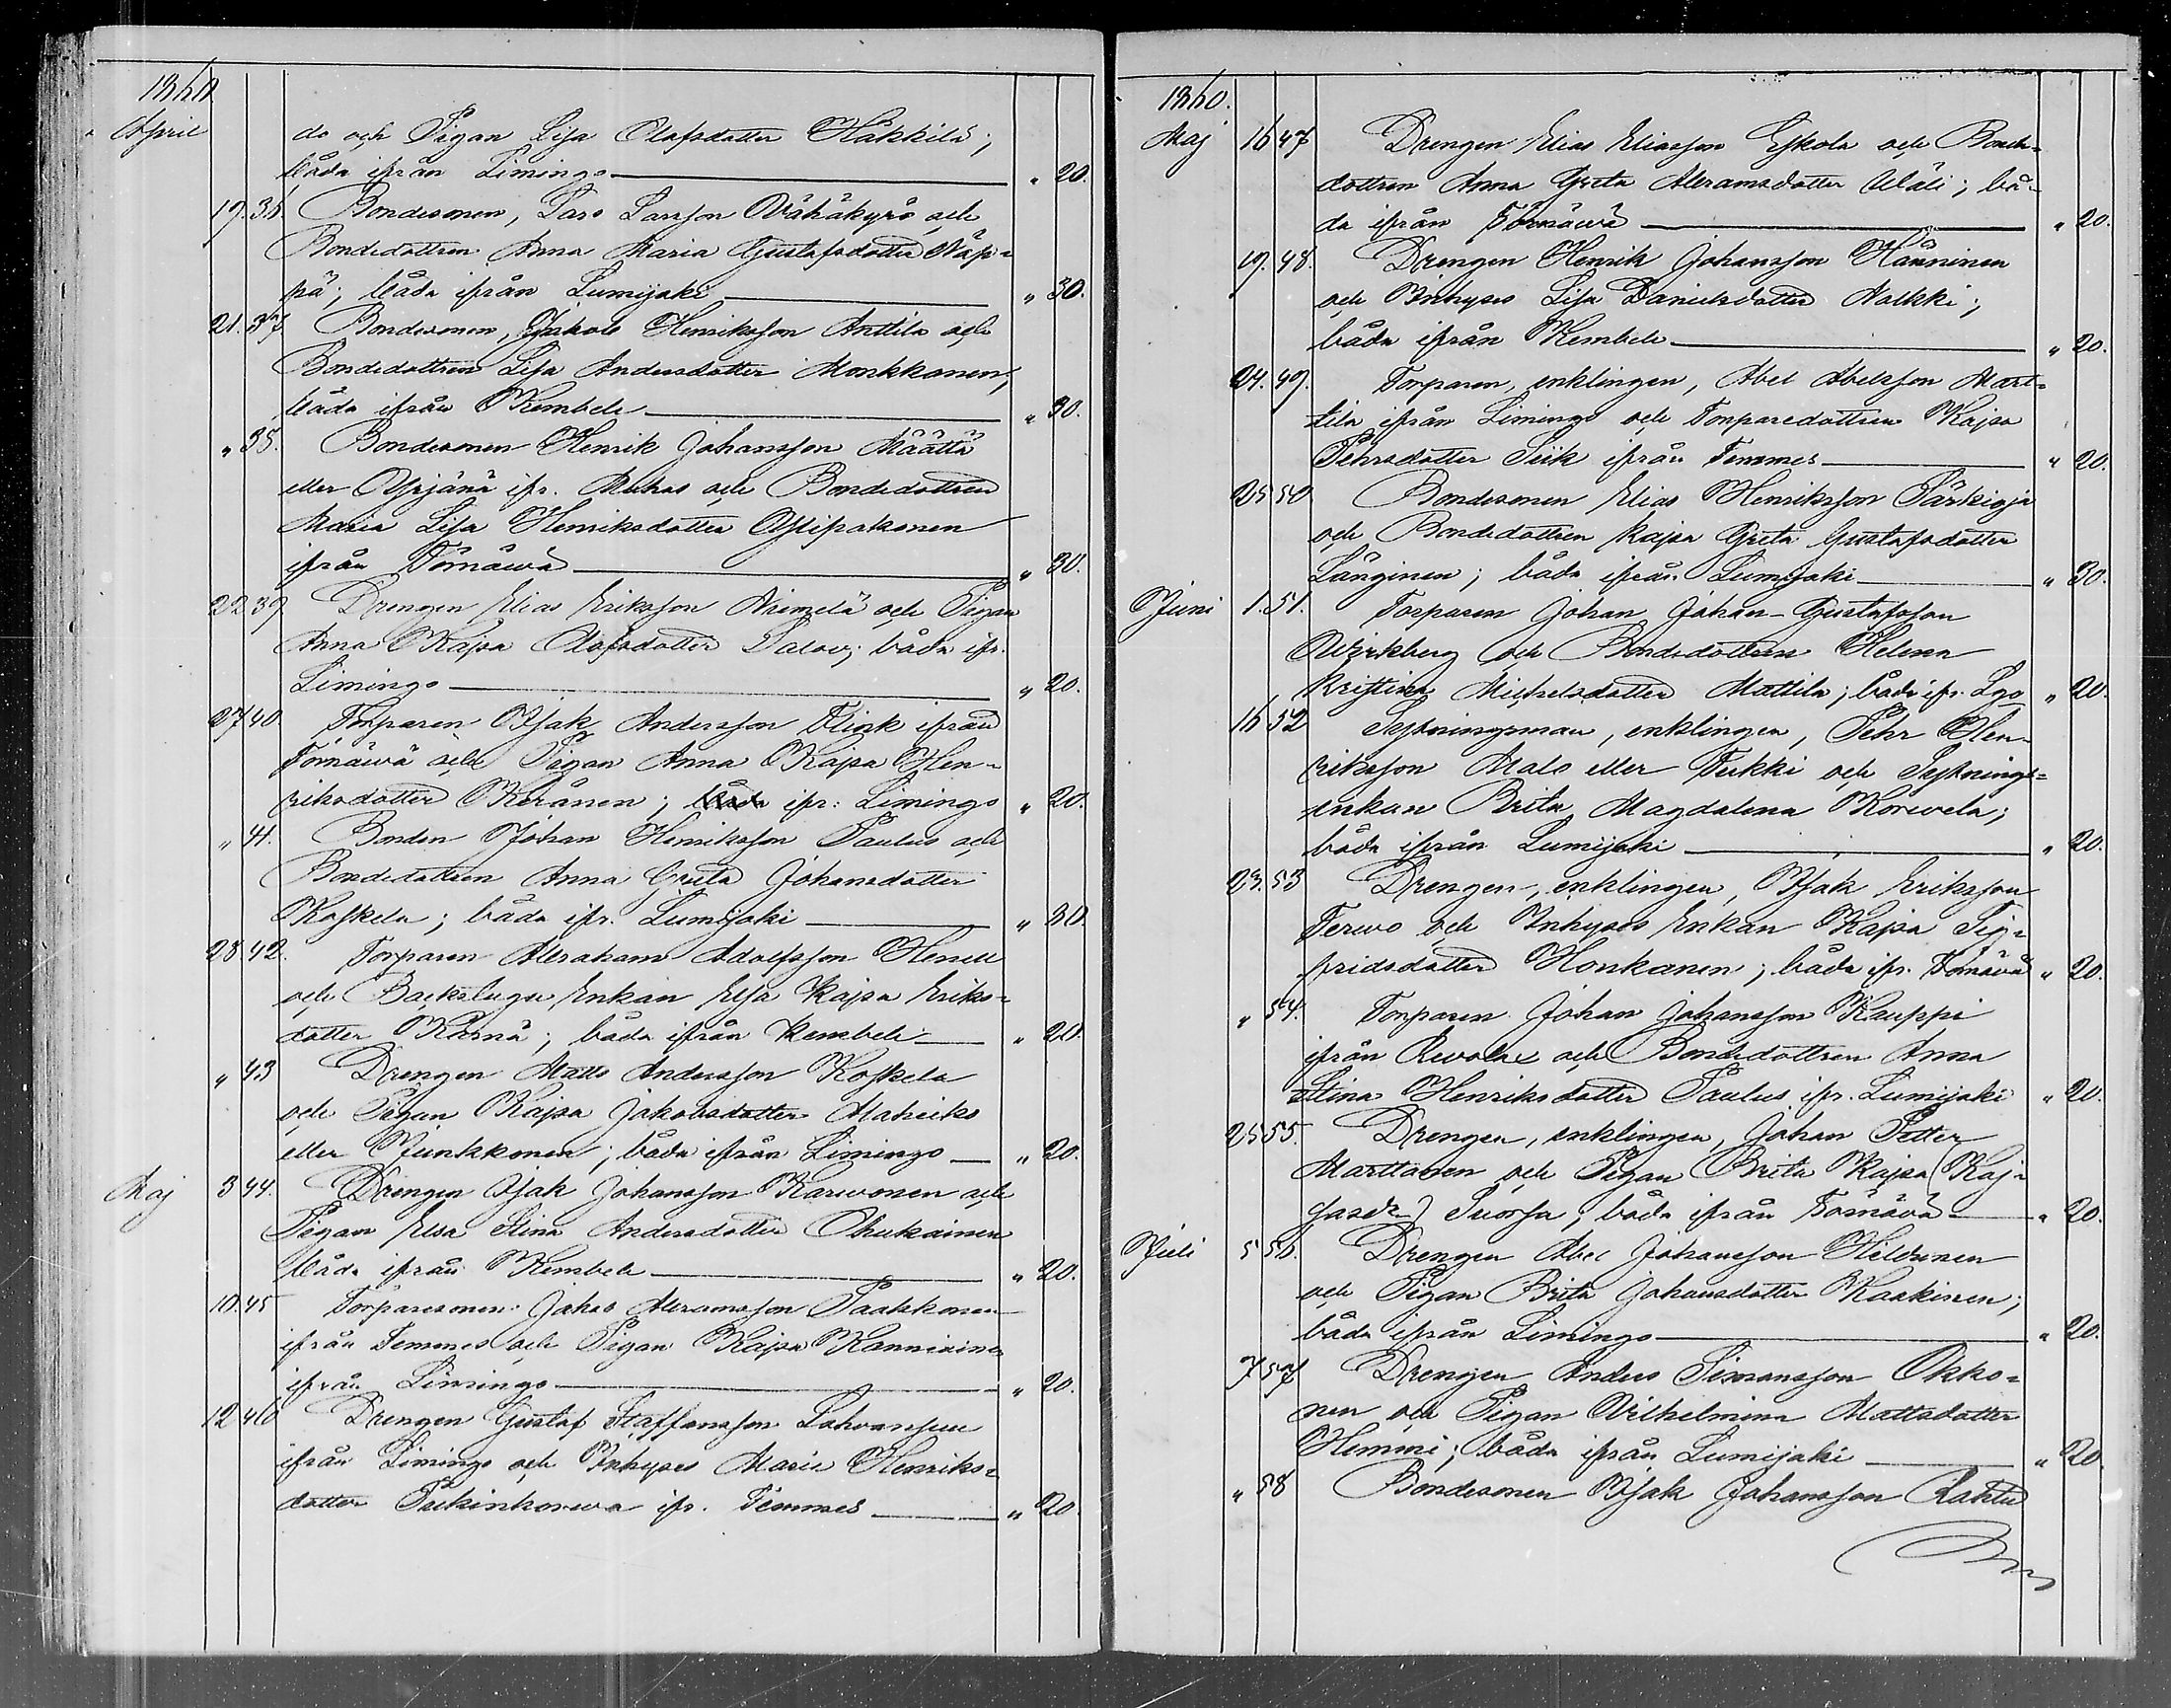 1860
April do och Pigan Lisa Olofsdotter Häkkilä;
båda ifrån Limingo " 20.
19. 36. Bondesonen, Lars Larsson Vähäkyrö och
Bondedottren Anna Maria Gustafsdotter Näp-
pä; båda ifrån Lumijoki " 30.
21. 37. Bondesonen, Jakob Henriksson Anttila och
Bondedottren Lisa Andersdotter Monkkanen;
båda ifrån Kembele " 30.
" 38. Bondesonen Henrik Johansson Määttä
eller Yrjänä ifr. Muhos och Bondedottren
Maria Lisa Henriksdotter Ylipakonen
ifrån Törnäwä " 30.
22 39 Drengen Elias Eriksson Niemelä och Pigan
Anna Kajsa Olofsdotter Salov; båda ifr.
Limingo " 20.
27 40 Torparen Isak Andersson Flink ifrån
Törnäwä och Pigan Anna Kajsa Hen-
riksdotter Keränen; båda ifr. Limingo " 20.
" 41. Bonden Johan Henriksson Paulus och
Bondedottren Anna Greta Johansdotter
Koskela; båda ifr. Lumijoki " 30.
28 42. Torparen Abraham Adolfsson Henell
och Backstugu Enkan Elsa Kajsa Eriks-
dotter Kärnä; båda ifrån Kembele " 20.
" 43 Drengen Matts Andersson Koskela
och Pigan Kajsa Jakobsdotter Matveiko
eller Junkkonen; båda ifrån Limingo " 20.
Maj 3 44. Drengen Isak Johansson Karvonen och
Pigan Elsa Stina Andersdotter Ohukainen
båda ifrån Kembele " 20.
10. 45 Torparesonen Jakob Abramsson Paakkonen
ifrån Temmes och Pigan Kajsa Kanniainen
ifrån Limingo " 20.
12 46 Drengen Gustaf Staffansson
ifrån Limingo och Inhyses Maria Henriks-
dotter Pitkinkorva ifr. Temmes " 20.
1860.
Maj 16 47 Drengen Elias Eliasson Eskola och Bonde-
dottren Anna Greta Abramsdotter Wäli; bå-
da ifrån Törnäwä " 20.
19. 48. Drengen Henrik Johansson Hänninen
och Inhyses Lisa Danielsdotter Nalkki;
båda ifrån Kembele " 20.
24. 49. Torparen, enklingen, Abel Abelsson Mart-
tila ifrån Limingo och Torparedottren Kajsa
Pehrsdotter Siik ifrån Temmes " 20.
25 50 Bondesonen Elias Henriksson Särkioja
och Bondedottren Kajsa Greta Gustafsdotter
Länginen; båda ifrån Lumijoki " 30.
Juni 1. 51. Torparen Johan Johan-Gustafsson
Wezikberg och Bondedottren Helena
Kristina Michelsdotter Mattila; båda ifr. Lgo " 20.
16 52 Sytningsman, enklingen, Pehr Hen-
riksson Malo eller Tukki och Sytnings-
enkan Brita Magdalena Korwela;
båda ifrån Lumijoki " 20.
23. 53 Drengen, enklingen, Isak Eriksson
Terwo och Inhyses Enkan Kajsa Sig-
fridsdotter Honkanen; båda ifr. Törnäwä " 20.
" 54. Torparen Johan Johansson Kauppi
ifrån Revolax och Bondedottren Anna
Stina Henriksdotter Paulus ifr. Lumijoki " 20.
25 55. Drengen, enklingen, Johan Petter
Marttanen och Pigan Brita Kajsa (Kaj-
) Suorsa; båda ifrån Törnävä " 20.
Juli 5 56. Drengen Abel Johansson Keldunen
och Pigan Brita Johansdotter Kaakinen;
båda ifrån Limingo " 20.
7 57 Drengen Anders Simonsson Okko-
nen och Pigan Wilhelmina Mattsdotter
Hemmi; båda ifrån Lumijoki " 20
" 58 Bondesonen Isak Johansson Rahtu